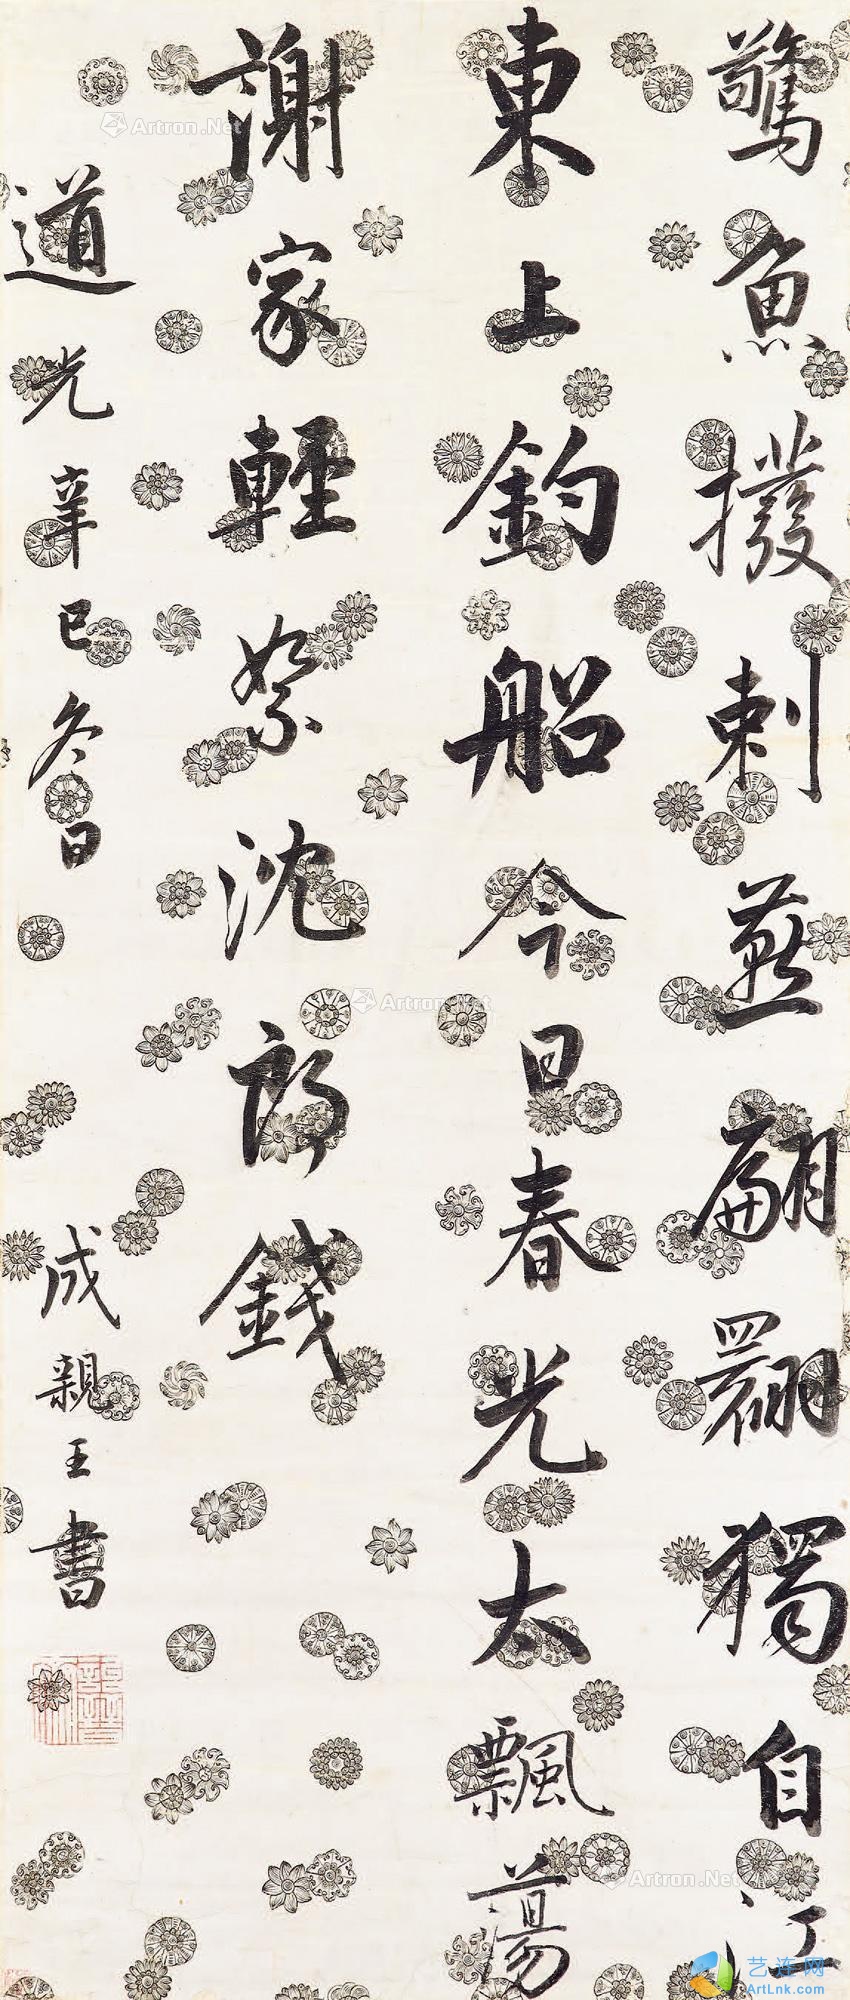 驚魚撥剌燕翩翾獨自江
東上釣船今日春光太飄蕩
謝家輕絮沈郎錢
道光辛巳冬日
成親王書
Artron.Net
Artron.Net
Artron.Net
艺连网
ArtLnk.com